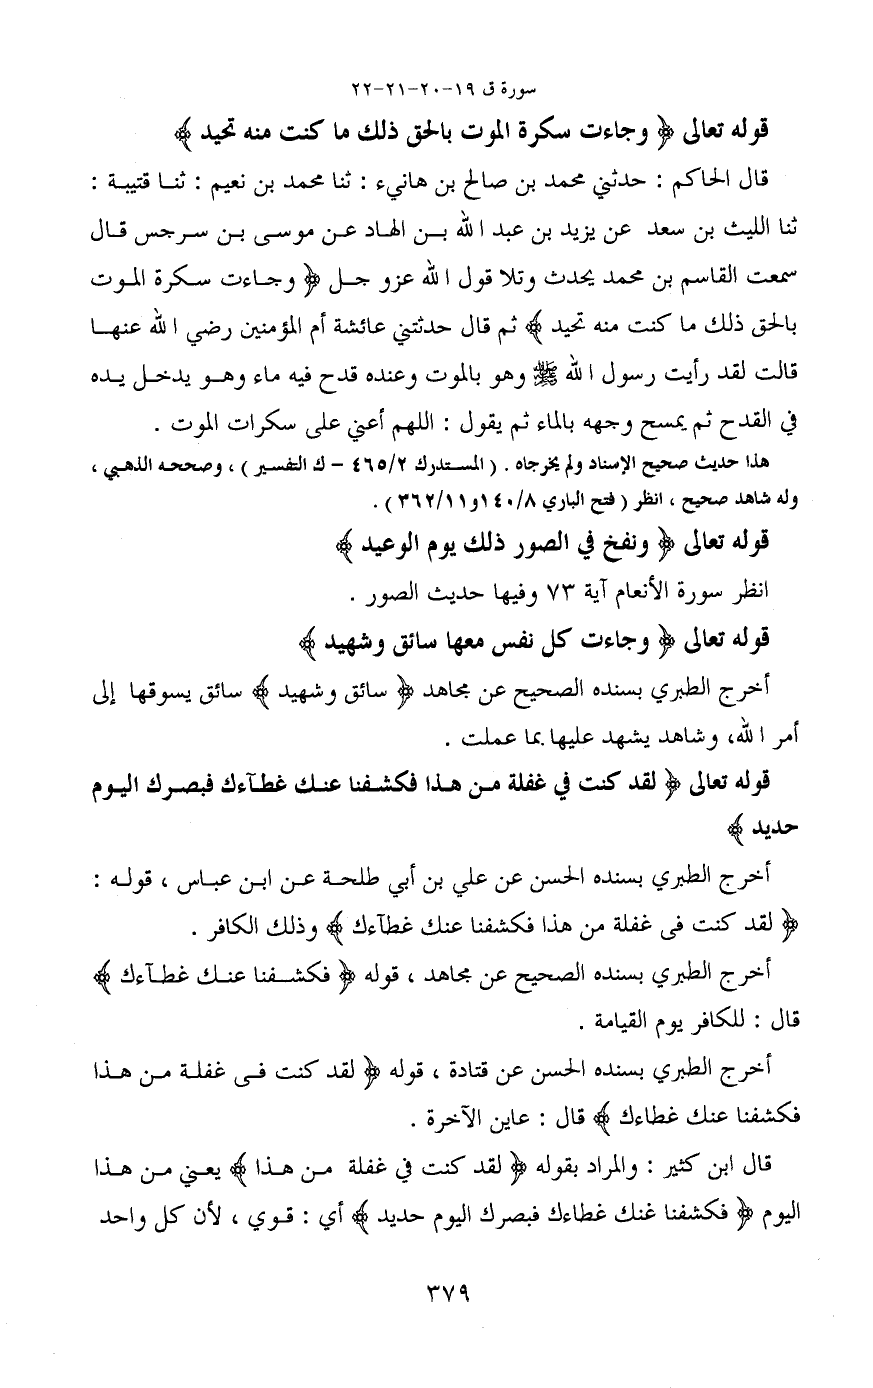 سورة ق ١٩-٢٠-٢١-٢٢
قوله تعالى ﴿ وجاءت سكرة الموت بالحق ذلك ما كنت منه تحيد ﴾
قال الحاكم : حدثني محمد بن صالح بن هانيء : ثنا محمد بن نعيم : ثنا قتيبة :
ثنا الليث بن سعد عن يزيد بن عبد الله بن الهاد عن موسى بن سرجس قال
سمعت القاسم بن محمد يحدث وتلا قول الله عزو جل ﴿ وجاءت سكرة الموت
بالحق ذلك ما كنت منه تحيد ﴾ ثم قال حدثتني عائشة أم المؤمنين رضي الله عنها
قالت لقد رأيت رسول الله ﷺ وهو بالموت وعنده قدح فيه ماء وهو يدخل يده
في القدح ثم يمسح وجهه بالماء ثم يقول : اللهم أعني على سكرات الموت .
هذا حديث صحيح الإسناد ولم يخرجاه . ( المستدرك ٤٦٥/٢ - ك التفسير ) ، وصححه الذهبي ،
وله شاهد صحيح ، انظر ( فتح الباري ١٤٠/٨و٣٦٢/١١ ) .
قوله تعالى ﴿ ونفخ في الصور ذلك يوم الوعيد ﴾
انظر سورة الأنعام آية ٧٣ وفيها حديث الصور .
قوله تعالى ﴿ وجاءت كل نفس معها سائق وشهيد ﴾
أخرج الطبري بسنده الصحيح عن مجاهد ﴿ سائق وشهيد ﴾ سائق يسوقها إلى
أمر الله، وشاهد يشهد عليها بما عملت .
قوله تعالى ﴿ لقد كنت في غفلة من هذا فكشفنا عنك غطآءك فبصرك اليوم
حديد ﴾
أخرج الطبري بسنده الحسن عن علي بن أبي طلحة عن ابن عباس ، قوله :
﴿ لقد كنت فى غفلة من هذا فكشفنا عنك غطآءك ﴾ وذلك الكافر .
أخرج الطبري بسنده الصحيح عن مجاهد ، قوله ﴿ فكشفنا عنك غطآءك ﴾
قال : للكافر يوم القيامة .
أخرج الطبري بسنده الحسن عن قتادة ، قوله ﴿ لقد كنت فى غفلة من هذا
فكشفنا عنك غطاءك ﴾ قال : عاين الآخرة .
قال ابن كثير : والمراد بقوله ﴿ لقد كنت في غفلة من هذا ﴾ يعني من هذا
اليوم ﴿ فكشفنا غنك غطاءك فبصرك اليوم حديد ﴾ أي : قوي ، لأن كل واحد
٣٧٩